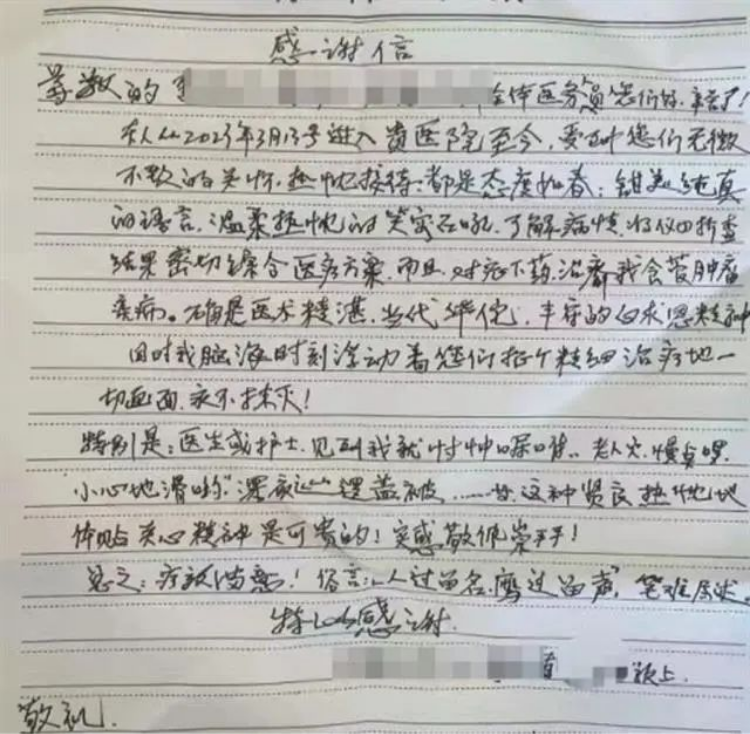 感谢信
尊敬的 全体医务员您们好、辛苦了!
本人从2023年3月13号进入贵医院至今、受到您们无微
不致的关怀、热忱接待:都是态度如春:甜美纯真
的语言、温柔热忱的笑容 了解病情、将仪四折查
结果密切综合医疗方案、而且、对症下药、治疗我食管肿瘤
疾病。确是医术精湛、当代华佗、 的白求恩精神
同时我脑海时刻浮动着您们 个精细治疗地一
切画面、永不抹灭!
特别是:医生或护士、见到我就忡忡 老人家、慢点啰、
小心地滑哟" 盖被......等这种贤良热忱地
体贴关心精神是可贵的!实感敬佩崇 !
总之:疗效满意!俗言:"人过留名、雁过留声"、笔难尽述。
特此感谢
敬上.
敬礼.